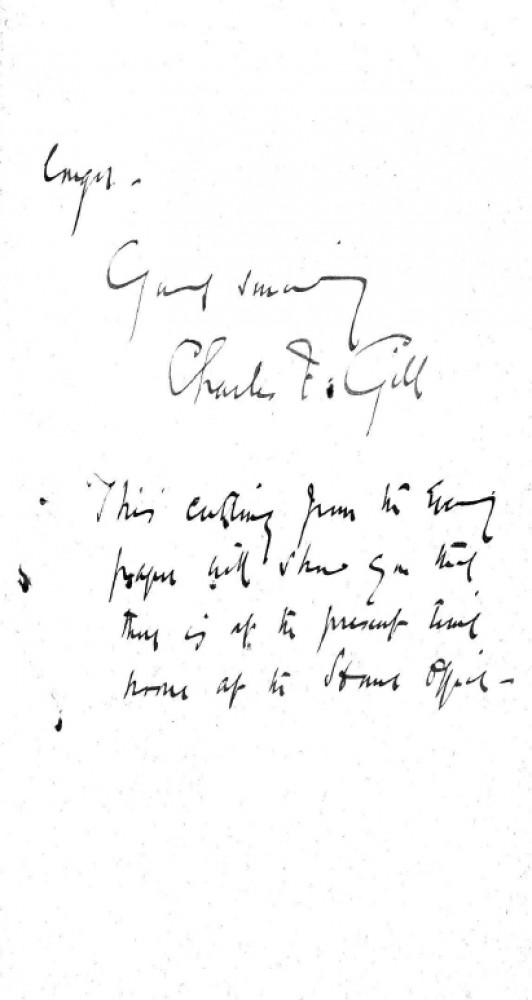 longer.
Yours sincerely
Charles F. Gill
This cutting from the Evening
paper will show you that
there is at the present time
at the Office -